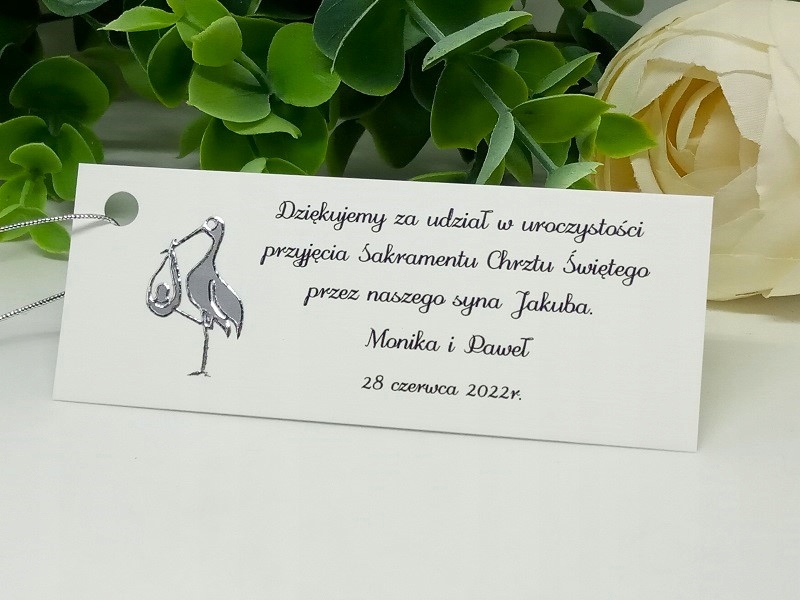 Dziękujemy za udział w uroczystości
przyjęcia Sakramentu Chrztu Świętego
przez naszego syna Jakuba.
Monika i Paweł
28 czerwca 2022r.